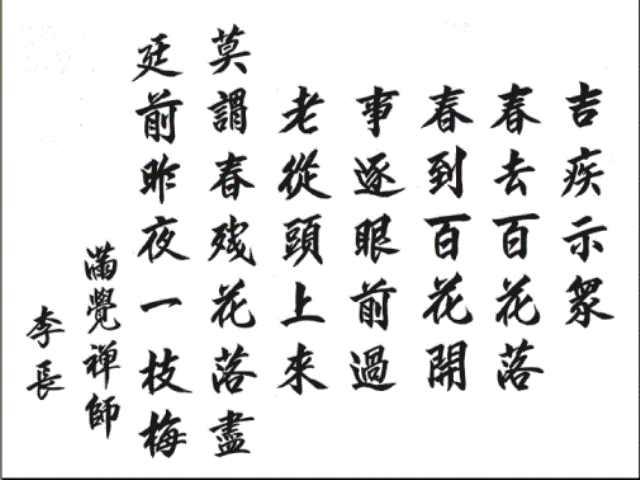 吉疾示衆
春去百花落
春到百花開
事逐眼前過
老從頭上來
莫謂春殘花落盡
廷前昨夜一枝梅
滿覺禅師
李長